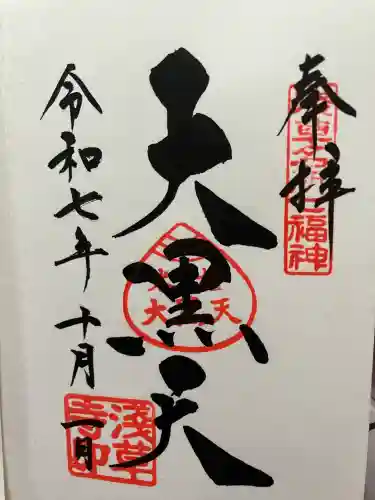 奉拝
浅草名所七福神
大黒天
令和七年 十月 一日
淺草
寺印